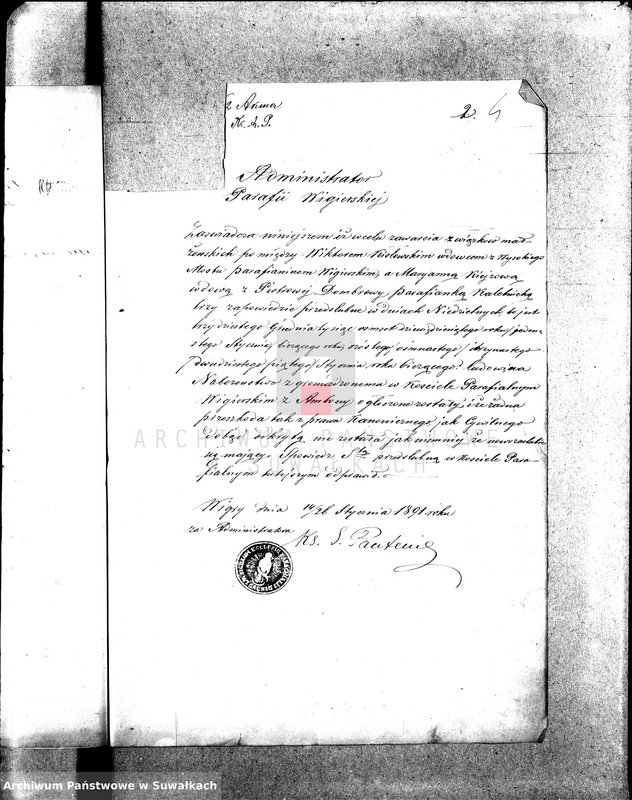 2 Akma
Nr. A. P.
2.
Administrator
Parafii Wigierskiej
Zaświadcza niniejszem iż w celu zawarcia związków mał-
żeńskich pomiędzy Wiktorem wdowcem z Wysokiego
Mostu parafianinem Wigierskim, a Maryanną
wdową z Piotrowej Dąmbrowy parafianką Kaletnicką
trzy zapowiedzie przedślubne w dniach Niedzielnych to jest
trzydziestego Grudnia tysiąc osmset dziewięćdziesiątego roku/
stego Stycznia bieżącego roku, szóstego/ośmnastego/i trzynastego
/dwudziestego piątego/Stycznia roku bieżącego ludowi na
Nabożeństwo zgromadzonemu w Kościele Parafialnym
Wigierskim z Ambony ogłoszone zostały, i że żadna
przeszkoda tak z prawa Kanonicznego jak Cywilnego
dotąd odkrytą nie została jak niemniej że
się mający Spowiedź Stą przedślubną w kościele Para-
fialnym tutejszym odprawił.
Wigry dnia 14/26 Stycznia 1891 roku
za Administratora
Ks. S.
ARCHIWUM PAŃSTWOWE
SUWAŁKACH
Archiwum Państwowe w Suwałkach